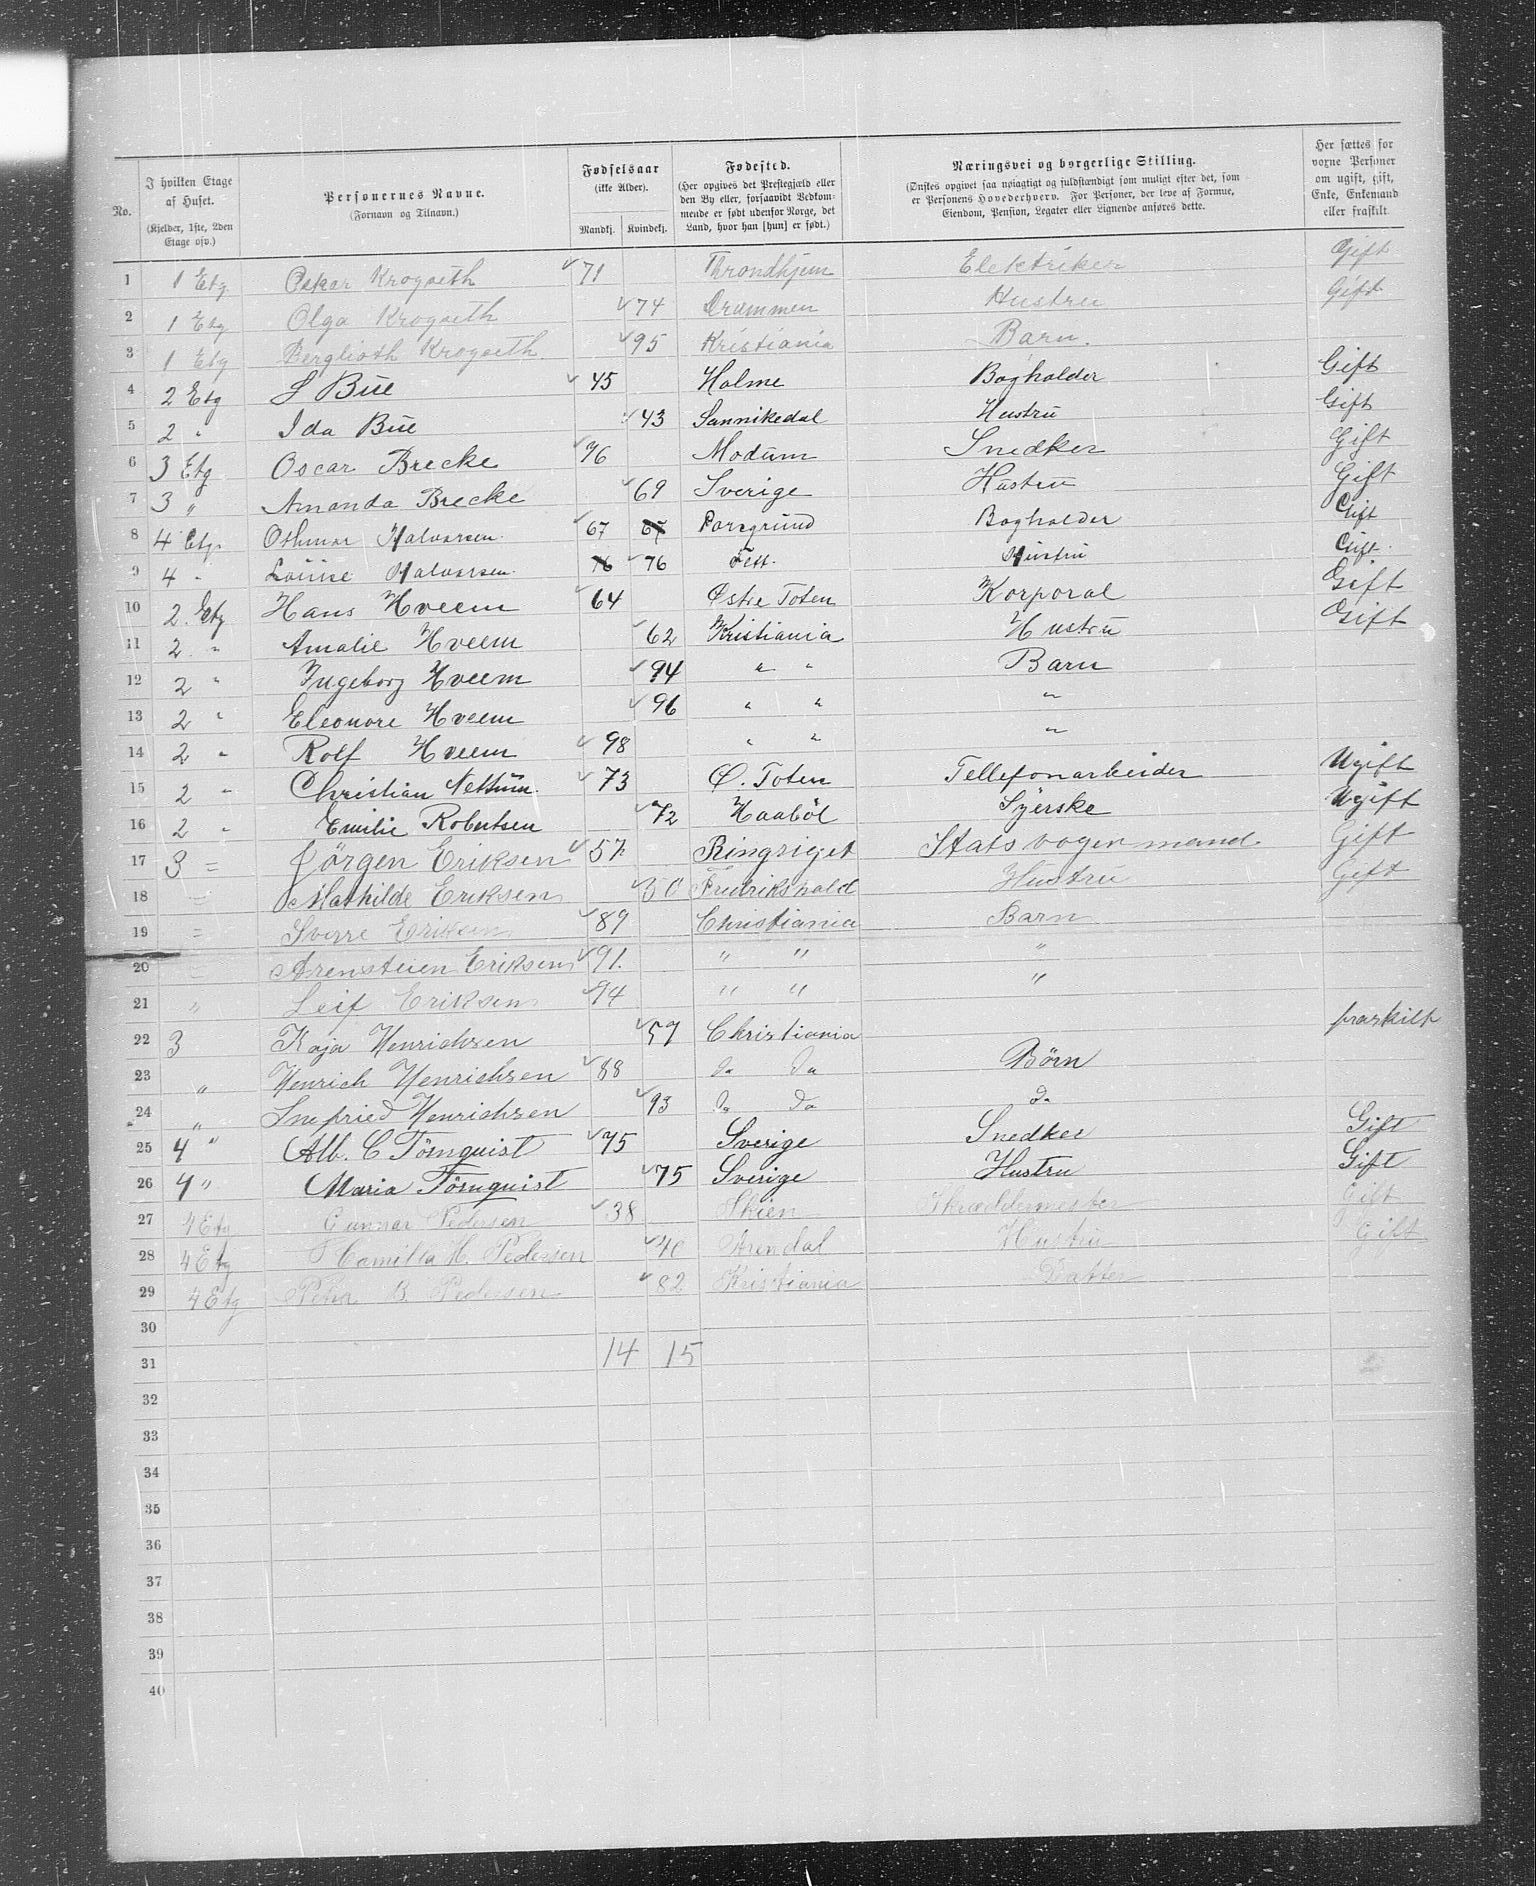 No. | I hvilken Etage af Huset. (Kjelder, 1ste, 2den Etage osv.) | Personernes Navne. (Fornavn og Tilnavn.) | Fødselsaar (ikke Alder). Mandkj. | Kvindekj. | Fødested. (Her opgives det Præstegjæld eller den By eller, forsaavidt Vedkommende er født udenfor Norge, det Land, hvor han [hun] er født.) | Næringsvei og borgerlige Stilling. (Ønskes opgivet saa nøiagtigt og fuldstændigt som muligt efter det, som er Personens Hovederhverv. For Personer, der leve af Formue, Eiendom, Pension, Legater eller Lignende anføres dette. | Her sættes for voxne Personer om ugift, gift, Enke, Enkemand eller fraskilt.
1 | 1 Etg | Oskar Krogseth | 71 | | Throndhjem | Elektriker | Gift
2 | 1 Etg | Olga Krogseth | | 74 | Drammen | Hustru | Gift
3 | 1 Etg | Berglioth Krogseth | | 95 | Kristiania | Barn. |
4 | 2 Etg | S Bue | 45 | | Holme | Bogholder | Gift
5 | 2 " | Ida Bue | | 43 | Sannikedal | Hustru | Gift
6 | 3 Etg | Oscar Brecke | 76 | | Modum | Snedker | Gift
7 | 3 " | Amanda Brecke | | 69 | Sverige | Hustru | Gift
8 | 4 Etg. | Othmar Halvorsen. | 67 | 67 | Porsgrund | Bogholder | Gift
9 | 4 " | Louise Halvorsen. | 76 | 76 | | Hustru | Gift.
10 | 2. Etg | Hans Hveem | 64 | | Østre Toten | Korporal | Gift
11 | 2. " | Amalie Hveem | | 62 | Kristiania | Hustru | Gift
12 | 2 " | Ingeborg Hveem | | 94 | " " | Barn |
13 | 2 " | Eleonore Hveem | | 96 | " " | " |
14 | 2 " | Rolf Hveem | 98 | | " " | " |
15 | 2 " | Christian Nettum. | 73 | | Ø. Toten | Tellefonarbeider | Ugift
16 | 2 " | Emilie Robertsen | | 72 | Haaböl | Syerske | Ugift
17 | 3 = | Jörgen Eriksen | 57 | | Ringriget | Stats vogenmand | Gift
18 | = | Mathilde Eriksen | | 50 | Fredrikshald | Hustru | Gift
19 | = | Sverre Eriksen | 89 | | Christiania | Barn |
20 | = | Arensteien Eriksen | 91. | | " " | " |
21 | " | Leif Eriksen | 94 | | " " | " |
22 | 3 | Kaja Henrichsen | | 57 | Christiania | | fraskilt
23 | " | Henrich Henrichsen | 88 | | Do Do | Børn |
24 | " | Snefried Henrichsen | | 93 | Do Do | Do |
25 | 4 " | Alb. C Törnquist | 75 | | Sverige | Snedker | Gift
26 | 4 " | Maria Törnquist | | 75 | Sverige | Hustru | Gift
27 | 4 Etg | Gunnar Pedersen | 38 | | Skien | Skræddermester | Gift
28 | 4 Etg | Camilla H. Pedersen | | 40 | Arendal | Hustru | Gift
29 | 4 Etg | Petra B Pedersen | | 82 | Kristiania | Datter |
30
31 | | | 14 | 15
32
33
34
35
36
37
38
39
40